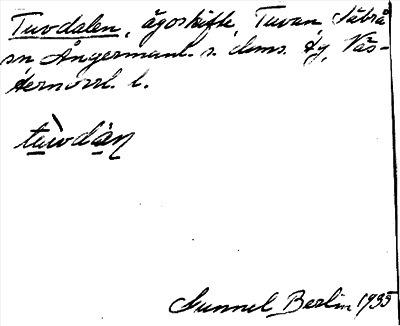 Tuvdalen, ägoskifte, Tuvan Säbrå
sn Ångermanl. s. dms. tg, Väs-
ternorrl. l.
tùvdàn
Gunnel Berlin 1935